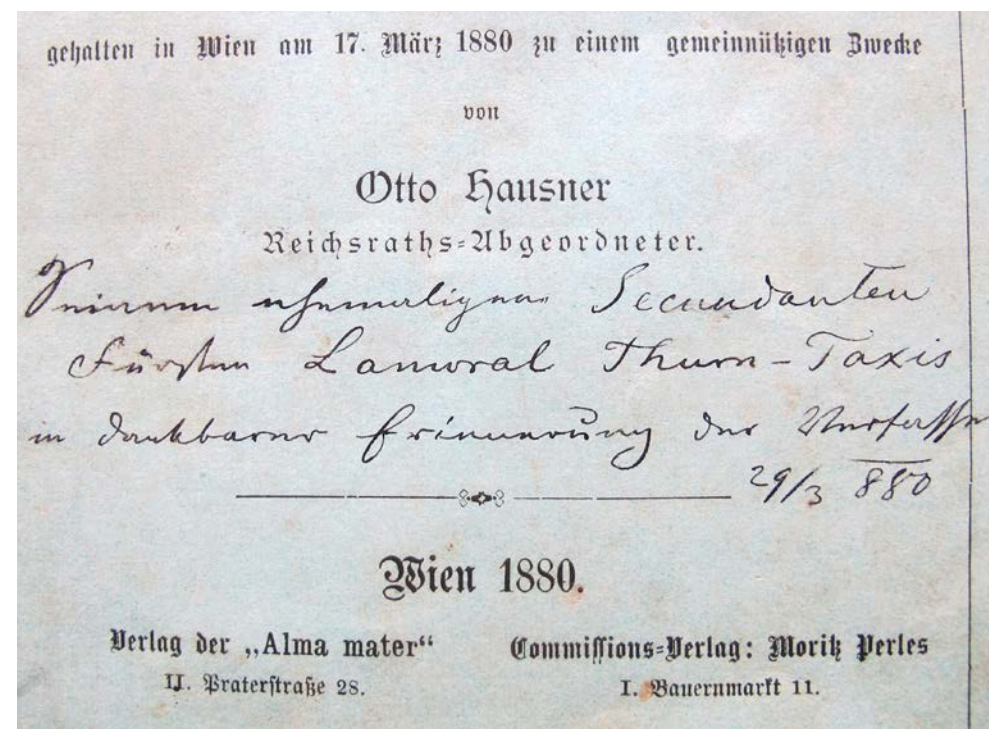 gehalten in Wien am 17. März 1880 zu einem gemeinnützigen Zwecke
von
Otto Hausner
Reichsraths-Abgeordneter.
Seinem ehemaligen Secundanten
Fürsten Lamoral Thurn-Taxis
in dankbarer Erinnerung der Verfasser
29/3 880
Wien 1880.
Verlag der „Alma mater“ Commissions-Verlag: Moritz Perles
II. Praterstraße 28. I. Bauernmarkt 11.